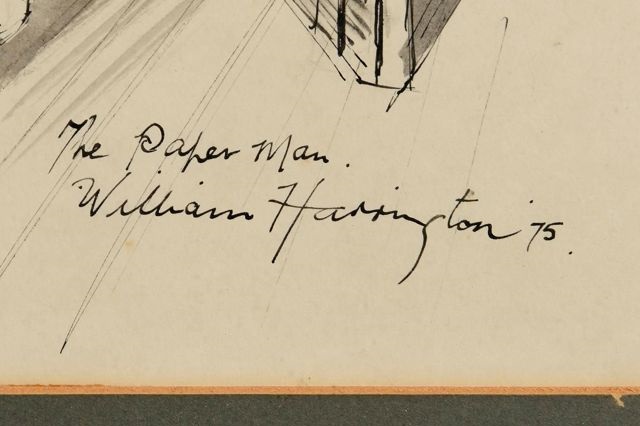 The Paper Man.
William Harrington '75.